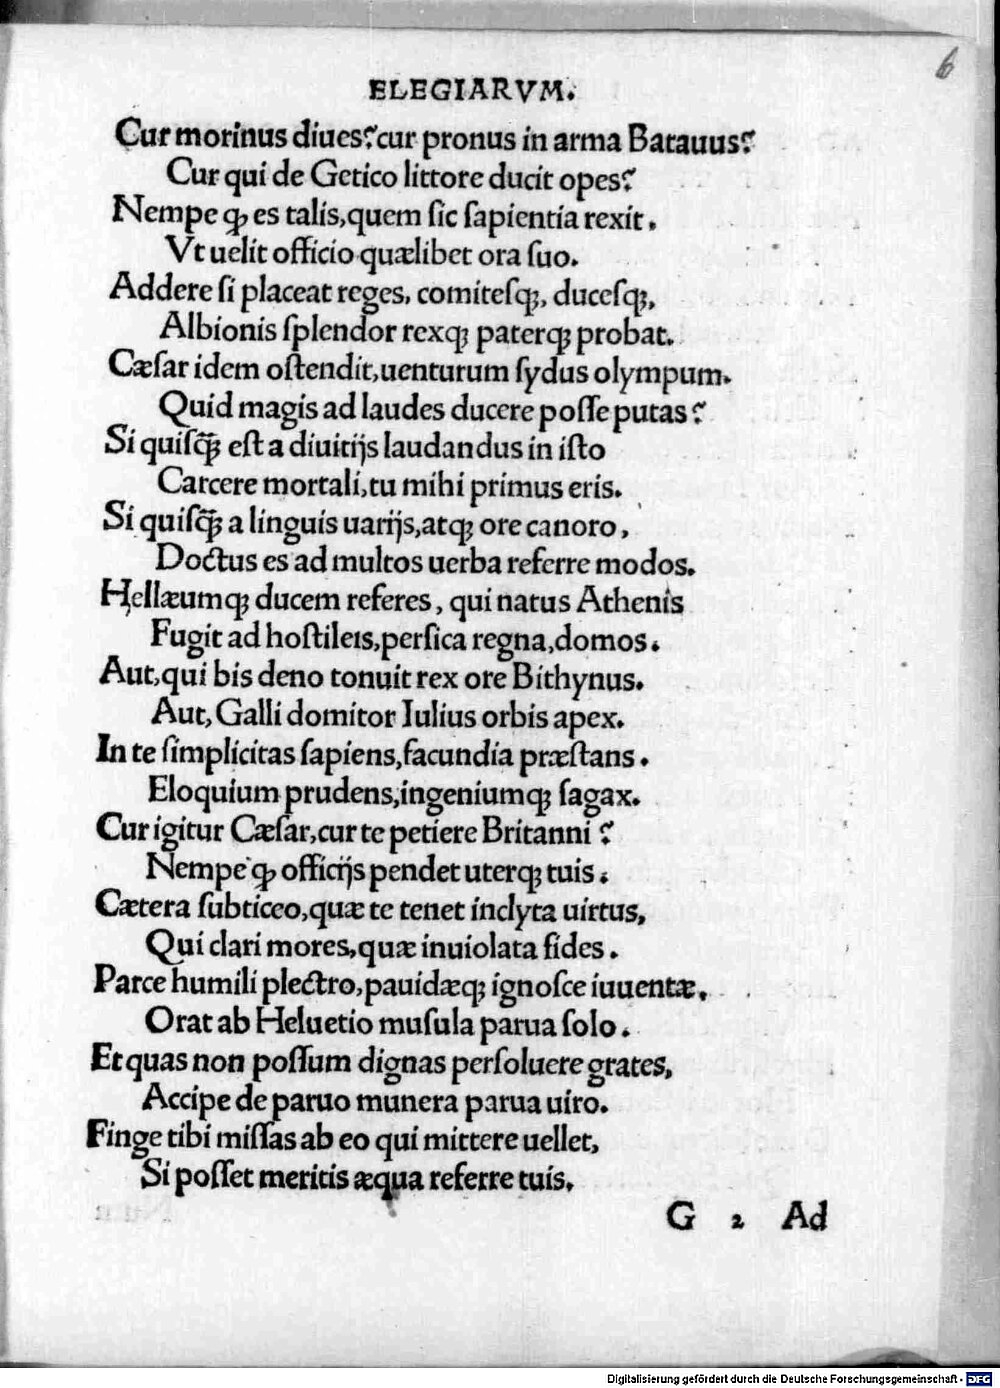 6
ELEGIARVM.
Cur morinus diues? cur pronus in arma Batauus?
Cur qui de Getico littore ducit opes?
Nempe ꝙ es talis, quem ſic ſapientia rexit.
Vt uelit officio quælibet ora ſuo.
Addere ſi placeat reges, comiteſqꝫ, duceſqꝫ,
Albionis ſplendor rexqꝫ paterqꝫ probat.
Cæſar idem oſtendit, uenturum ſydus olympum.
Quid magis ad laudes ducere poſſe putas?
Si quiſꝙ̃ eſt a diuitijs laudandus in iſto
Carcere mortali, tu mihi primus eris.
Si quiſꝙ̃ a linguis uarijs, atqꝫ ore canoro,
Doctus es ad multos uerba referre modos.
Hellæumqꝫ ducem referes, qui natus Athenis
Fugit ad hoſtileis, perſica regna, domos.
Aut, qui bis deno tonuit rex ore Bithynus.
Aut, Galli domitor Iulius orbis apex.
In te ſimplicitas ſapiens, facundia præſtans.
Eloquium prudens, ingeniumqꝫ ſagax.
Cur igitur Cæſar, cur te petiere Britanni?
Nempe ꝙ officijs pendet uterqꝫ tuis.
Cætera ſubticeo, quæ te tenet inclyta uirtus,
Qui clari mores, quæ inuiolata fides.
Parce humili plectro, pauidæqꝫ ignoſce iuuentæ.
Orat ab Heluetio muſula parua ſolo.
Et quas non poſſum dignas perſoluere grates,
Accipe de paruo munera parua uiro.
Finge tibi miſſas ab eo qui mittere uellet,
Si poſſet meritis æqua referre tuis.
G 2 Ad
Digitalisierung gefördert durch die Deutsche Forschungsgemeinschaft - DFG